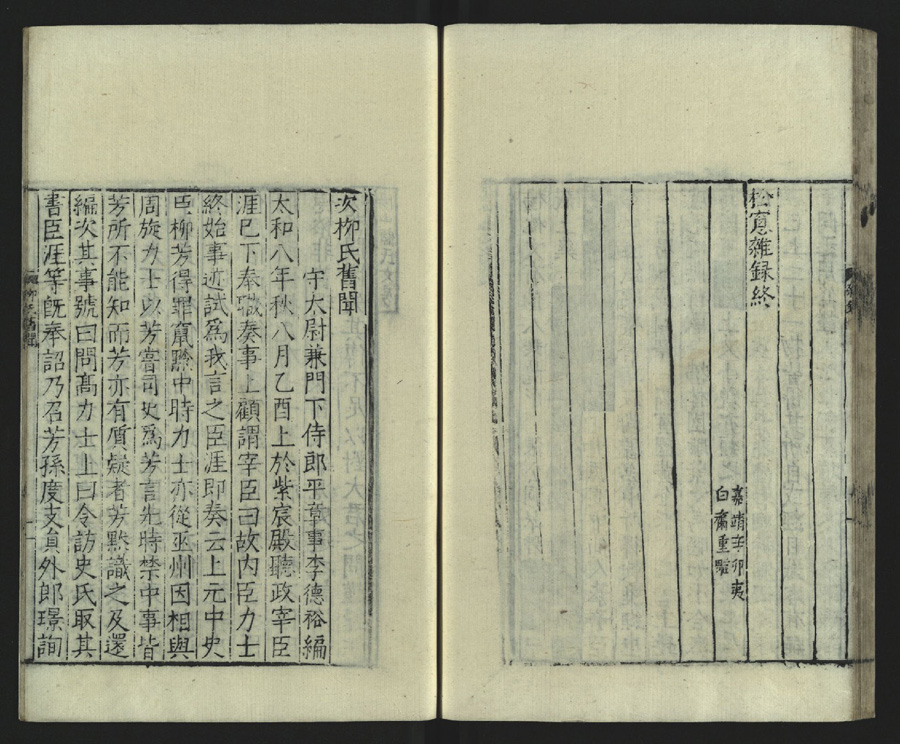 松窻雜録終
嘉靖辛卯夷
白齋重雕
次柳氏舊聞
守太尉兼門下侍郎平章事李德裕編
太和八年秋八月乙酉上於紫宸殿聽政宰臣
涯已下奉職奏事上顧謂宰臣曰故内臣力士
終始事迹試爲我言之臣涯即奏云上元中史
臣柳芳得罪竄黔中時力士亦從巫州因相與
周旋力士以芳甞司史爲芳言先時禁中事皆
芳所不能知而芳亦有質疑者芳黙識之及還
編次其事號曰問髙力士上曰令訪史氏取其
書臣涯等旣奉詔乃召芳孫度支貟外郎璟詢